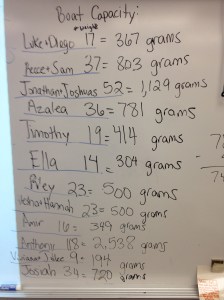 Boat Capacity:
weight
Luke + Diego 17 = 367 grams
Reece + Sam 37 = 803 grams
Jonathan + Joshua 52 = 1,129 grams
Azalea 36 = 781 grams
Timothy 19 = 414 grams
Ella 14 = 304 grams
Riley 23 = 500 grams
Hannah 23 = 500 grams
16 = 349 grams
Anthony 118 = 2,538 grams
9 = 194 grams
Josiah 34 = 720 grams